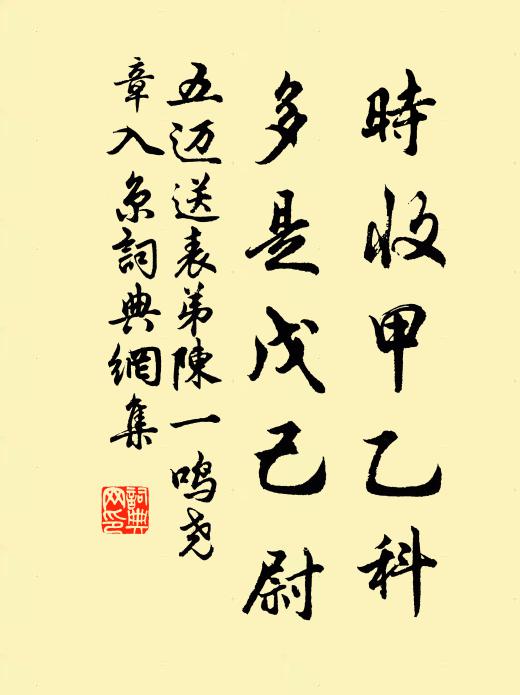 時收甲乙科
多是戊己尉
五迈送表弟陳一鸣尧
章入京詞典網集
詞典
网印